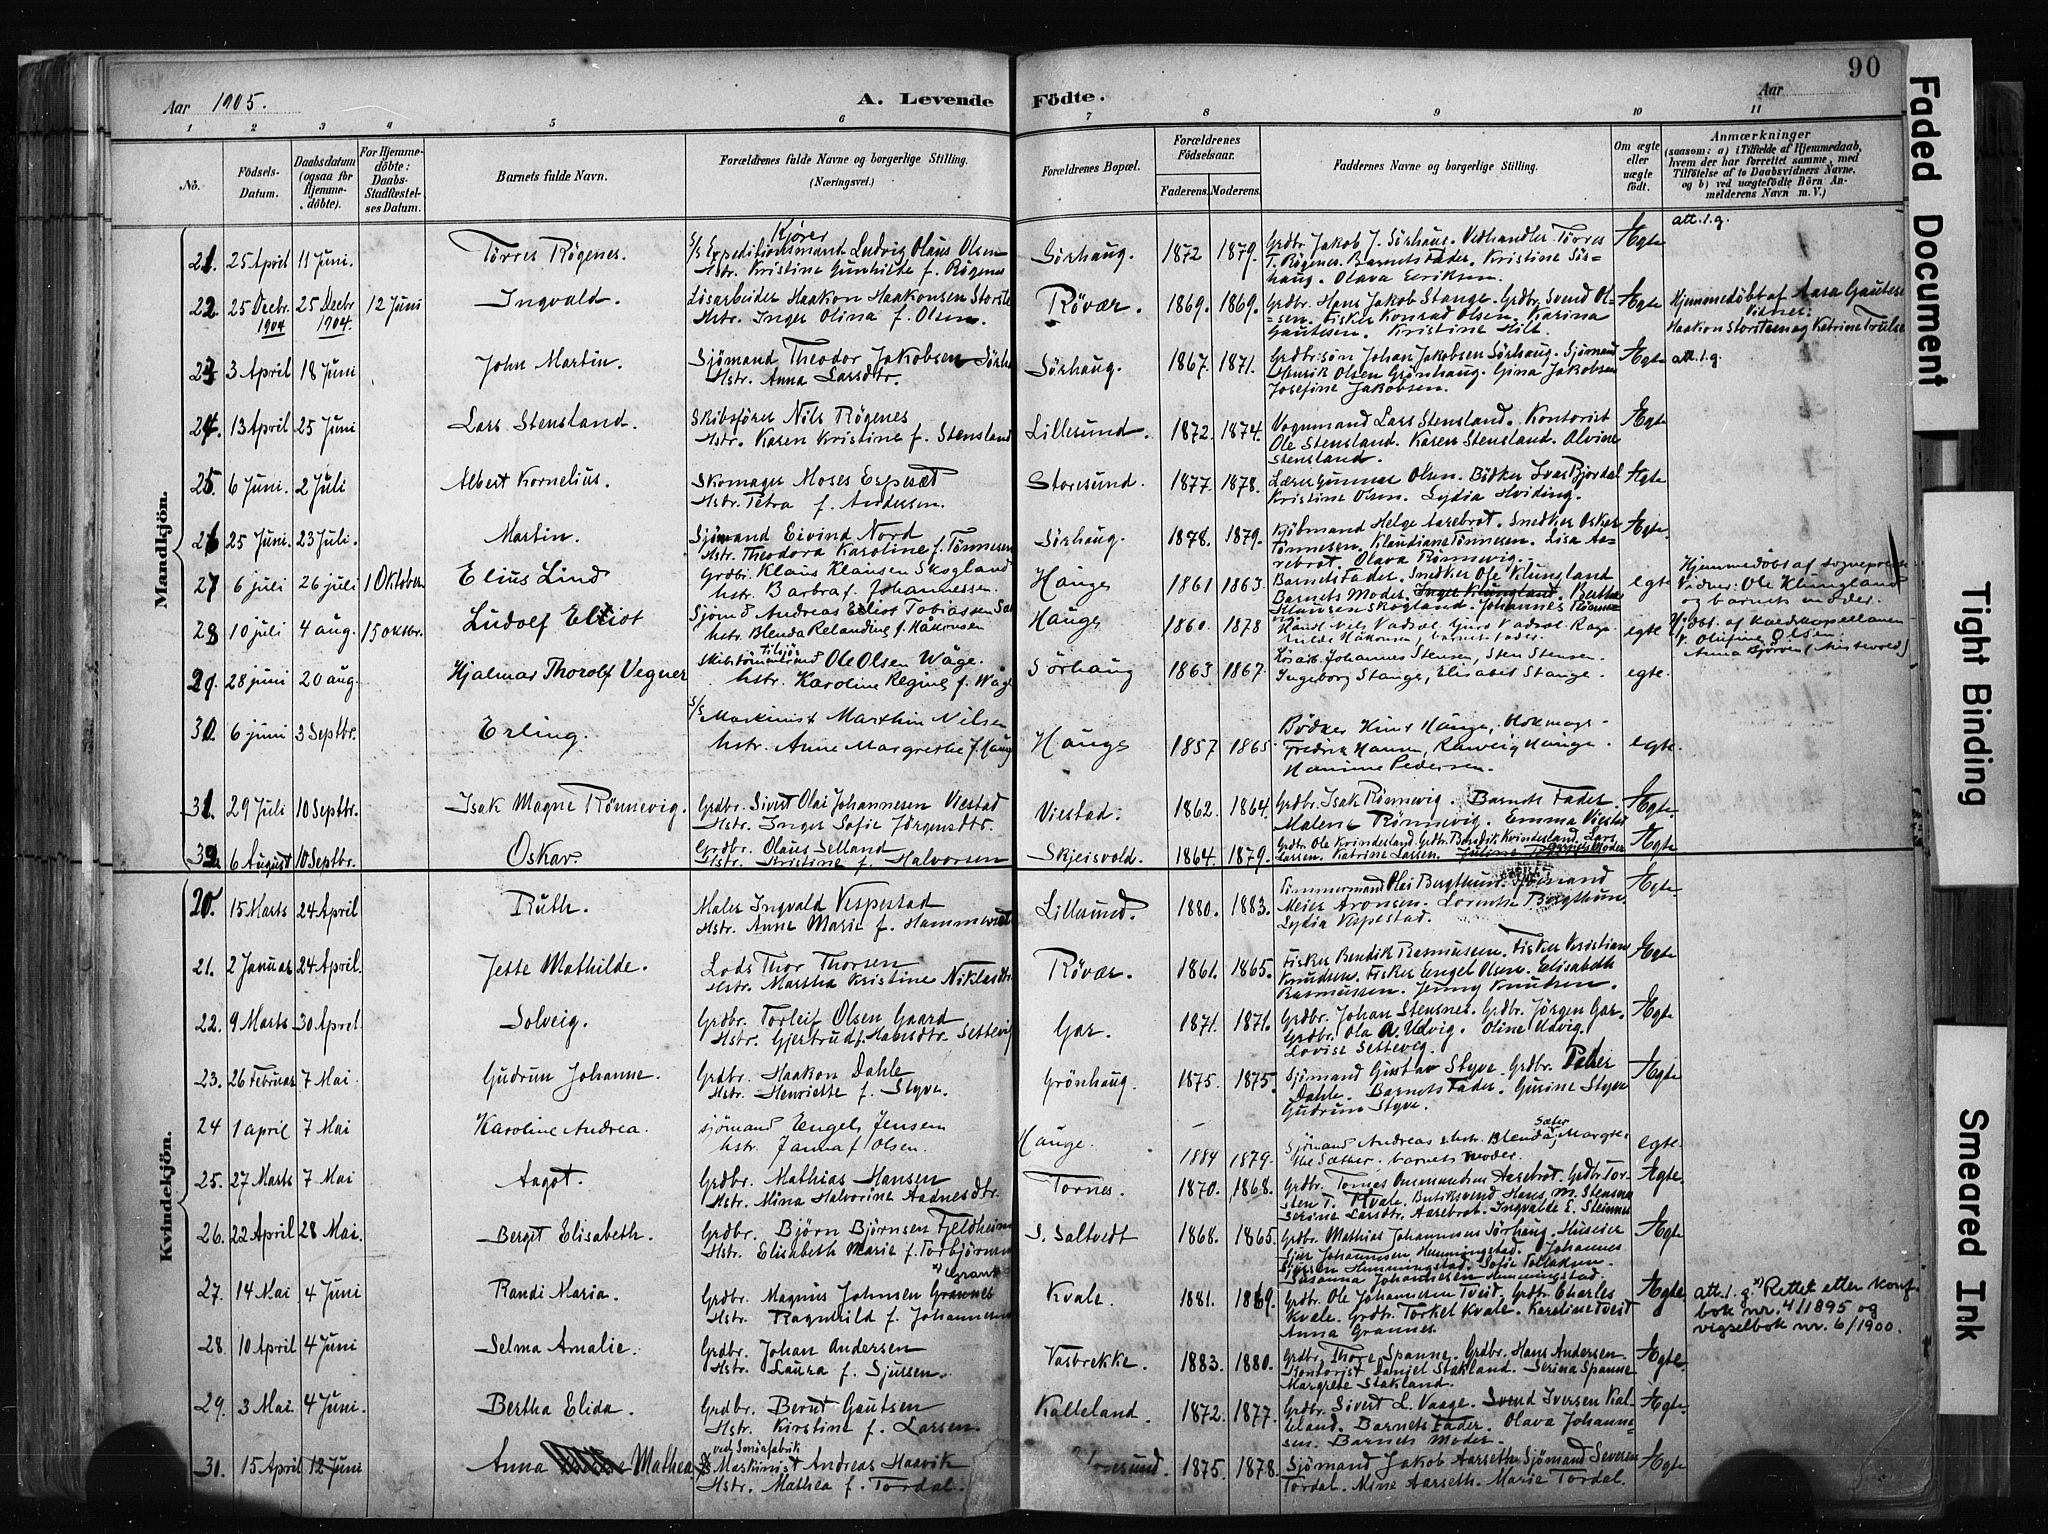 90
Aar 1905.
A. Levende Födte.
Aar
1 2 3 4 5 6 7 8 9 10 11
No.
Födsels-Datum.
Daabsdatum (ogsaa för Hjemmedöbte).
For Hjemmedöbte: Daabs-Stadfæstelses Datum.
Barnets fulde Navn.
Forældrenes fulde Navne og borgerlige Stilling. (Næringsvei.)
Forældrenes Bopæl.
Forældrenes Födselsaar.
Faderens. Moderens.
Faddernes Navne og borgerlige Stilling.
Om ægte eller uægte födt.
Anmærkninger
(saasom: a) i Tilfælde af Hjemmedaab, hvem der har forrettet samme, med Tilföielse af to Daabsvidners Navne, og b) ved uægtefödte Börn Anmelderens Navn m. V.)
Mandkjön.
21. 25 April 11 Juni. Tørres Røgenes. S/S Expeditionsmand Kjører Ludvig Olaus Olsen Sørhaug. 1872 1879. Grdbr. Jakob J. Sørhaug. Vedhandler Tørres Ægte att. l. g.
Hstr. Kristine Gunhilde f. Røgenes T. Røgenes. Barnets Fader. Kristine Sørhaug. Olava Eeriksen.
22. 25 Decbr. 1904 25 Decbr 1904. 12 Juni Ingvald. Løsarbeider Haakon Haakonsen Røvær. 1869. 1869. Grdbr. Hans Jakob Stange. Grdbr. Svend Olsen. Ægte Hjemmedøbt af Aasa
Hstr. Inger Olina f. Olsen. Fisker Konrad Olsen. Karina Kristine Hilt. Haakon Storsten og Katrine
23. 3 April 18 Juni John Martin. Sjømand Theodor Jakobsen Sørhaug. 1867. 1871. Grdbr.søn Johan Jakobsen Sørhaug. Sjømand Ægte att. l. g.
Hstr. Anna Larsdtr. Henrik Olsen Grønhaug. Gina Jakobsen Josefine Jakobsen.
24. 13 April 25 Juni Lars Stensland. Skibsfører Nils Røgenes Lillesund. 1872. 1874. Vognmand Lars Stensland. Kontorist Ægte
Hstr. Karen Kristine f. Stensland Ole Stensland. Karen Stensland. Alvine Stensland.
25. 6 Juni. 2 Juli Albert Kornelius. Skomager Moses Espeset Storesund. 1877. 1878. Lærer Gunnar Olsen. Bødker Ivar Bjordal Ægte
Hstr. Petra f. Andersen. Kristine Olsen. Lydia Hviding.
26 25 Juni. 23 Juli. Martin. Sjømand Eivind Nord Sørhaug. 1878. 1879. Kjøbmand Helge Aarebrot. Snedker Oskar Ægte.
Hstr. Theodora Karoline f. Tønnesen Tønnesen. Klaudiane Tønnesen. Lisa Aarebrot. Olava Rønnevig.
27 6 juli 26 juli 1 Oktober Elius Lind Grdbr. Klaus Klausen Skogland Hauge 1861 1863. Barnets Fader. Snedker Ole Klungland egte Hjemmedøbt af sogneprest
hstr. Barbra f. Johannessen. Barnets Moder. Inger Klungland. Bertha Hansen Skogland. Johannes Vidner: Ole Klungland og barnets moder.
28 10 juli 4 aug. 15 oktbr. Ludolf Elliot Sjømd Andreas Elliot Tobiassen Hauge 1860. 1878 Nils Vadsal. Guro Vadsal. egte Hjdbt. af
hstr. Blenda f. Håkonsen Håkonsen, barnets fader. V. Olufine Olsen. Anna
29. 28 juni 20 aug. Hjalmar Thorolf Vegner Skibstømmermd tilsjøs Ole Olsen Wåge. Sørhaug 1863 1867. Løsarb. Johannes Stensen, Sten Stensen. egte.
hstr. Karoline Regine f. Wåge Ingeborg Stange, Elisabet Stange.
30. 6 juni 3 Septbr. Erling. S/S Maskinist Marthin Nilsen Hauge 1857 1865. Bødker Knut Hauge, egte.
hstr. Anne Margrethe f. Hauge Fredrik Hansen, Hauge. Hanine Pedersen.
31. 29 Juli 10 Septbr. Isak Magne Rønnevig. Grdbr. Sivert Olai Johannesen Viestad Viestad. 1862. 1864. Grdbr. Isak Rønnevig. Barnets Fader. Ægte.
Hstr. Inger Sofie Jørgensdtr. Malene Rønnevig. Emma Viestad
32 6 August 10 Septbr. Oskar. Grdbr. Olaus Selland Skjeisvold. 1864. 1879. Grdbr. Ole Kvindesland. Grdbr. Benedik Kvindesland. Lars Ægte
Hstr. Kristine f. Halvorsen Larsen. Katrine Larsen.
Kvindekjön.
20. 15 Marts 24 April Ruth. Maler Ingvald Vespestad Lillesund. 1880. 1883. Tømmermand Olai Bergthun. Ægte
Hstr. Anne Marie f. Meier Aronsen. Lorentse Bergthun. Lydia Vespestad.
21. 2 Januar 24 April. Jette Mathilde. Lods Thor Thorsen Røvær. 1861. 1865. Fisker Bendik Rasmussen. Fisker Kristian Ægte
Hstr. Martha Kristine Niklasdtr. Knudsen. Fisker Engel Olsen. Elisabeth Rasmussen. Jenny Knudsen.
22. 9 Marts 30 April. Solveig. Grdbr. Torleif Olsen Gaard Gar. 1871. 1871. Grdbr. Johan Stensnes. Grdbr. Jørgen Gar. Ægte
Hstr. Gjertrud f. Settevig Grdbr. Ola A. Udvig. Oline Udvig. Lovise Settevig.
23. 26 Februar 7 Mai Gudrun Johanne. Grdbr. Haakon Dahle Grönhaug. 1875. 1875. Sjømand Gustav Styve. Grdbr. Peder Ægte
Hstr. Henriette f. Styve. Dahle. Barnets Fader. Gurine Styve Gudrun Styve.
24 1 april 7 Mai Karoline Andrea. sjømand Engels Jensen Hauge. 1884 1879. Sjømand Andreas & hstr. Blenda Sæter, egte.
hstr. Janna f. Olsen. Sæther. barnets moder.
25. 27 Marts 7 Mai Aagot. Grdbr. Mathias Hansen Tornes. 1870. 1868. Grdbr. Tornes Aarebrot. Grdbr. Torsten Ægte.
Hstr. Mina Halvorine Aadnesdtr. T. Kvale. Butiksvend Hans M. Stensnes Serine Larsdtr. Aarebrot. Ingvalde E. Steinnes
26. 22 April 28 Mai. Berget Elisabeth. Grdbr. Bjørn Bjørnsen Fjeldheim S. Saltvedt 1868. 1865. Grdbr. Mathias Johannessen Sørhaug. Huseier Ægte
Hstr. Elisabeth Marie f. Torbjørnsen Johannessen Hemmingstad. Johannes Sjursen Hemmingstad. Sofie Tollaksen. Susanna Johannessen Hemmingstad.
27. 14 Mai 4 Juni Randi Maria. Grdbr. Magnus Johnsen Grannes x) Grans Kvale. 1881. 1869. Grdbr. Ole Johannesen Tveit. Grdbr. Charles Ægte. att. l. g. x) Rettet etter konf.
Hstr. Ragnhild f. Johannesen Kvale. Grdbr. Torkel Kvale. Karoline Tveit Anna Grannes. bok nr. 4/1895 og vigselbok nr. 6/1900.
28. 10 April 4 Juni Selma Amalie. Grdbr. Johan Andersen Vasbrekke. 1883. 1880. Grdbr. Thore Spanne. Grdbr. Hans Andersen Ægte.
Hstr. Laura f. Sjursen. Kontorist Daniel Stakland. Serina Spanne Margrete Stakland.
29. 3 Mai. 4 Juni. Bertha Elida. Grdbr. Bernt Gautsen Kalleland. 1872. 1877. Grdbr. Sivert L. Vaage. Svend Iversen Kalleland. Ægte.
Hstr. Kirstine f. Larsen. Barnets Fader. Olava Johannesen. Barnets Moder.
30. 15 April 12 Juni Anna Mathea ved Smørfabrik Maskinist Andreas Haavik Storesund. 1875. 1878. Sjømand Jakob Aarseth. Sjømand Severin Ægte
Hstr. Mathea f. Tordal. Tordal. Mine Aarseth. Marie Tordal.
Faded Document
Tight Binding
Smeared Ink